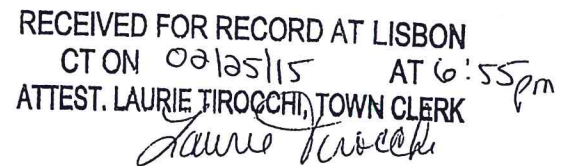 RECEIVED FOR RECORD AT LISBON
CT ON 02/25/15 AT 6:55pm
ATTEST. LAURIE TIROCCHI, TOWN CLERK
Laurie Tirocchi